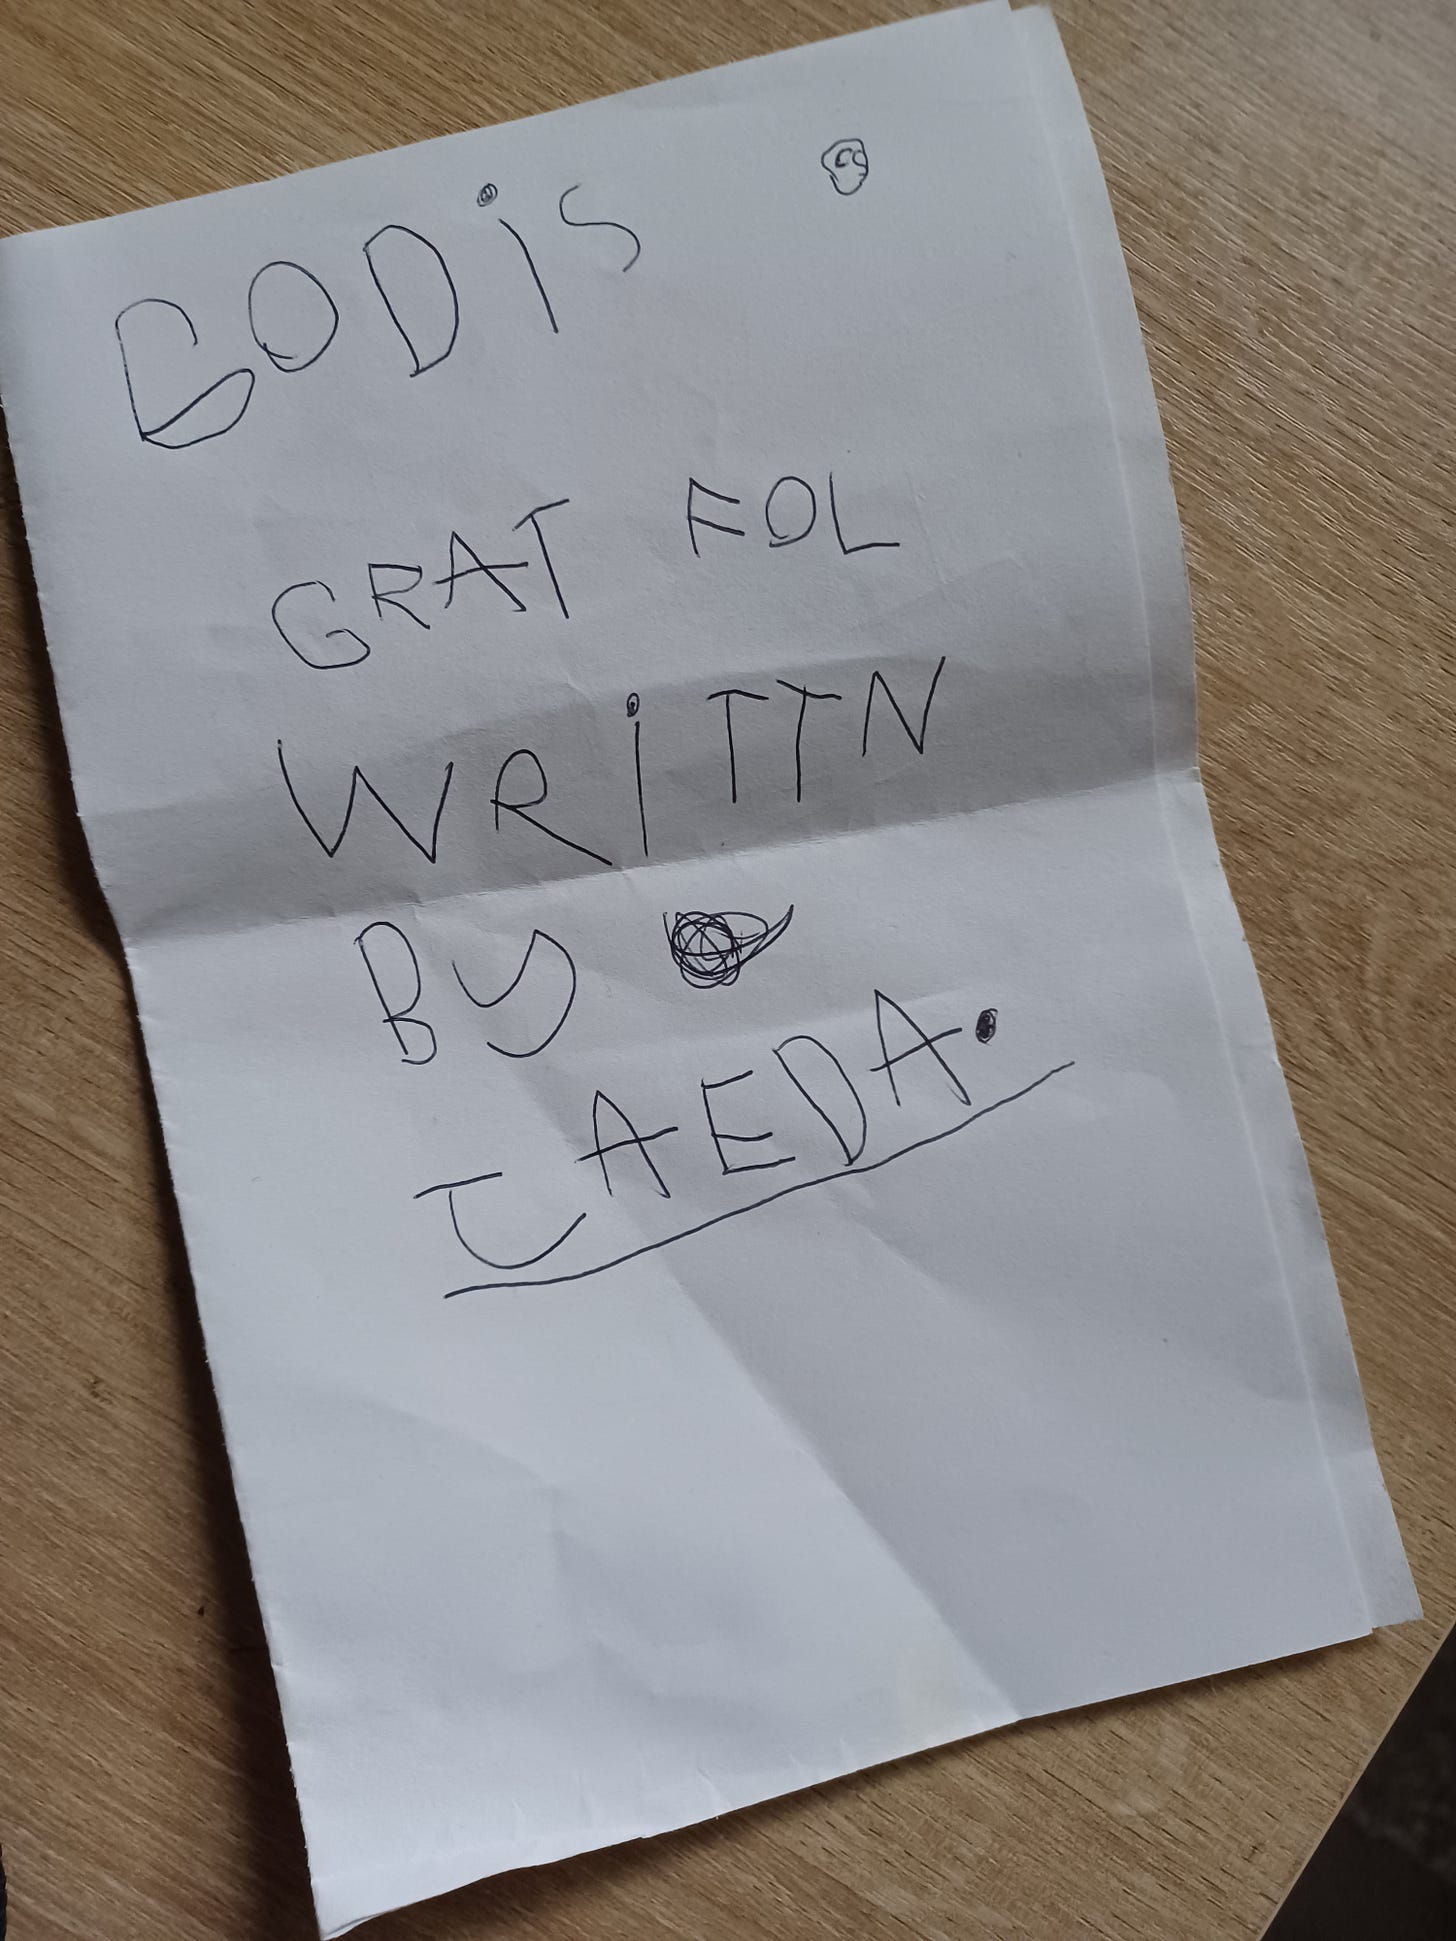 GODiS
GRAT FOL
WRiTTN
By
JAEDA.